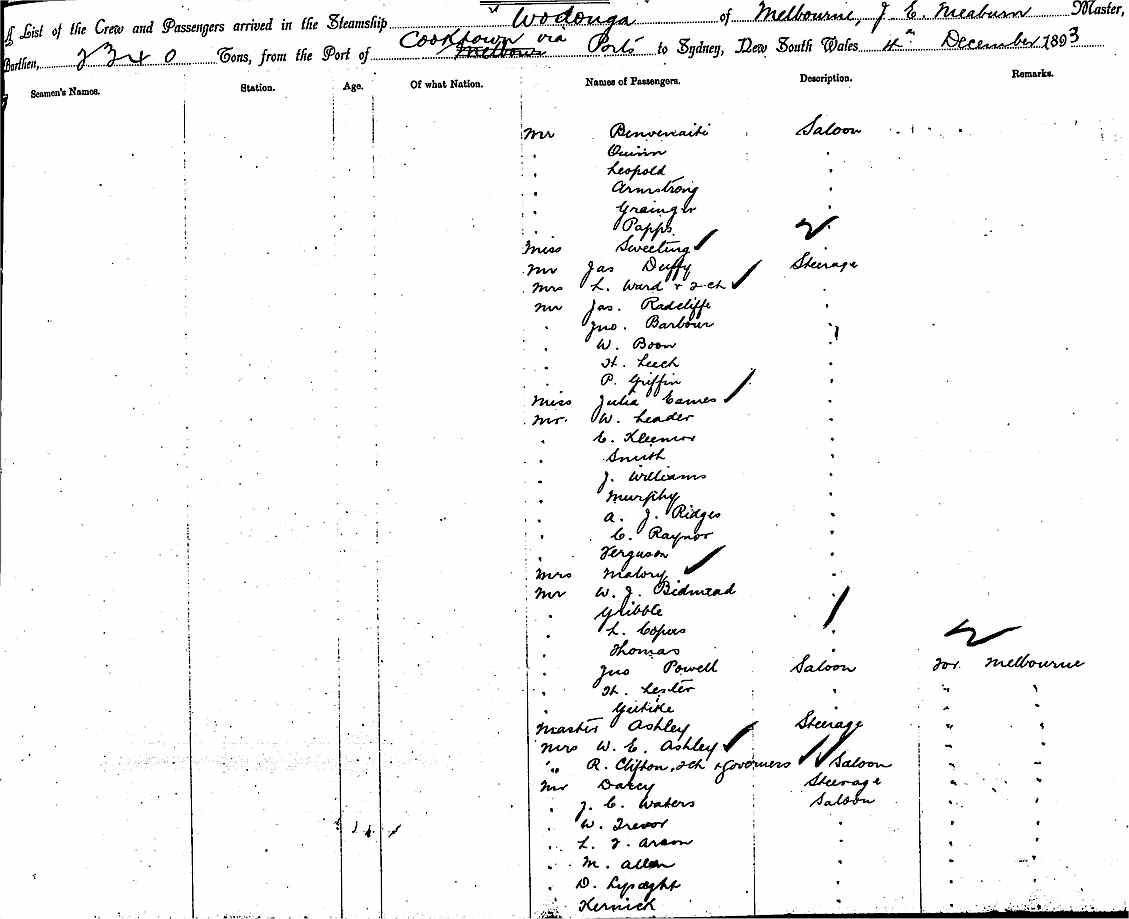 A List of the Crew and Passengers arrived in the Steamship "Wodonga of Melbourne, J E Meaburn Master,
Burthen, 2340 Tons, from the Port of Cooktown via Ports to Sydney, New South Wales 4th December 1893
Seamen's Names. Station. Age. Of what Nation. Names of Passengers. Description. Remarks.
Mr Saloon
" Quinn "
" Leopold "
" Armstrong "
" Grainger "
" Papps
Miss Sweeting
Mr Jas Duffy Steerage
Mrs L. Ward + 2 ch
Mr Jas. Radcliffe "
" Jno. Barbour
" W. Boon "
" H. Leech "
" P. Griffin "
Miss Julia Eames "
Mr. W. Leader "
" C. "
" Smith "
" J. Williams "
" Murphy "
" A. J. Ridges "
" C. Raynor "
" Ferguson "
Mrs Malony "
Mr W. J. Bidmead "
" Gribble
" L. "
" Thomas "
" Jno Powell Saloon for Melbourne
" H. Lester " " "
" " " "
Master Ashley Steerage " "
Mrs W. E. Ashley " "
" R. Clifton, 2 ch + governess Saloon " "
Mr Darcy Steerage " "
" J. C. Waters Saloon " "
" W. Trevor " " "
" L. " " "
" M. Allen " " "
" D. Lysaght " " "
" Kernick " " "